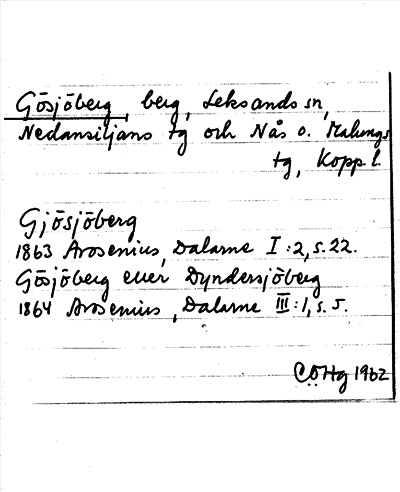 Gösjöberg, berg, Leksands sn,
Nedansiljans tg och Nås o. Malungs
tg, Kopp. l.
Gjösjöberg
1863 Arosenius, Dalarne I:2, s. 22.
Gösjöberg eller Dyndersjöberg
1864 Arosenius, Dalarne III:1, s. 5.
CÖHg 1962